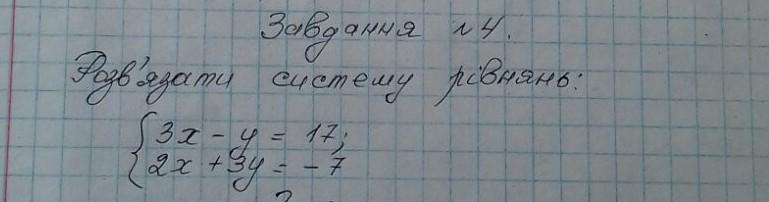 Завдання №4.
Розв'язати систему рівнянь:
3x - y = 17;
2x + 3y = -7